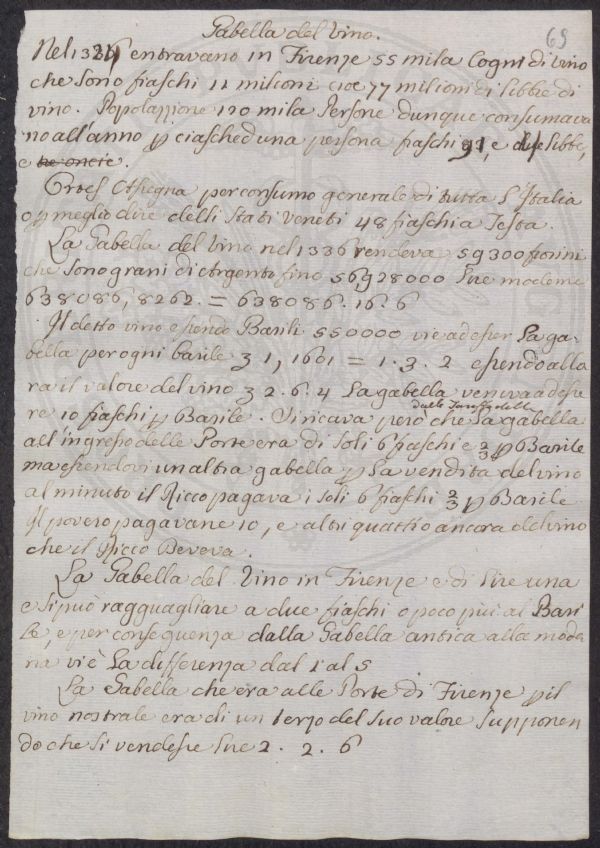 Gabella del Vino.
69
Nel 1336 entravano in Firenze 55 mila Cogni di vino
che sono fiaschi 11 milioni cioe 77 milioni di libbre di
vino. Popolazzione 120 mila Persone dunque consumava
no all'anno p ciascheduna persona fiaschi 91, e libbe,
e tre oncie.
per consumo generale di tutta l'Italia
o p meglio dire delli Stati Veneti 48 fiaschi a Testa.
La Gabella del Vino nel 1336 rendeva 59300 fiorini
che sono grani di Argento fino 56,928000 Lire moderne
638086,8262. = 638086. 16. 6
Il detto vino essendo Barili 550000 vie ad esser La ga-
bella per ogni barile 3 1, 1601 = 1. 3. 2 essendo allo
ra il valore del vino 3 2. 6. 4 La gabella veniva ad esse
re 10 fiaschi p Barile. Si ricava però che La gabella
dalle
all'ingresso delle Porte era di soli 6 fiaschi e 2/3 p Barile
ma essendovi un altra gabella p La vendita del vino
al minuto il Ricco pagava i soli 6 fiaschi 2/3 p Barile
Il povero pagavane 10, e altri quattro ancora del vino
che il Ricco Beveva.
La Gabella del Vino in Firenze e di Lire una
e si può ragguagliare a due fiaschi o poco più al Bari
le, e per conseguenza dalla Gabella antica alla moder
na vi è La differenza dal 1 al 5
La Gabella che era alle Porte di Firenze p il
vino nostrale era di un terzo del suo valore supponen
do che si vendesse Lire 2. 2. 6